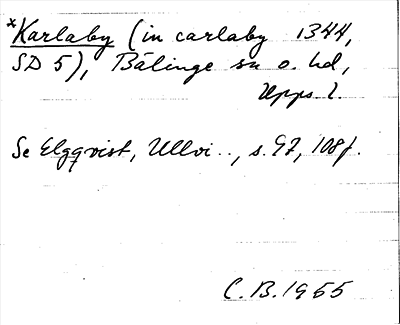 *Karlaby (in carlaby 1344,
SD 5), Bälinge sn o. hd,
Upps. l.
Se Elgqvist, Ullvi.., s. 97, 108f.
C.B. 1955